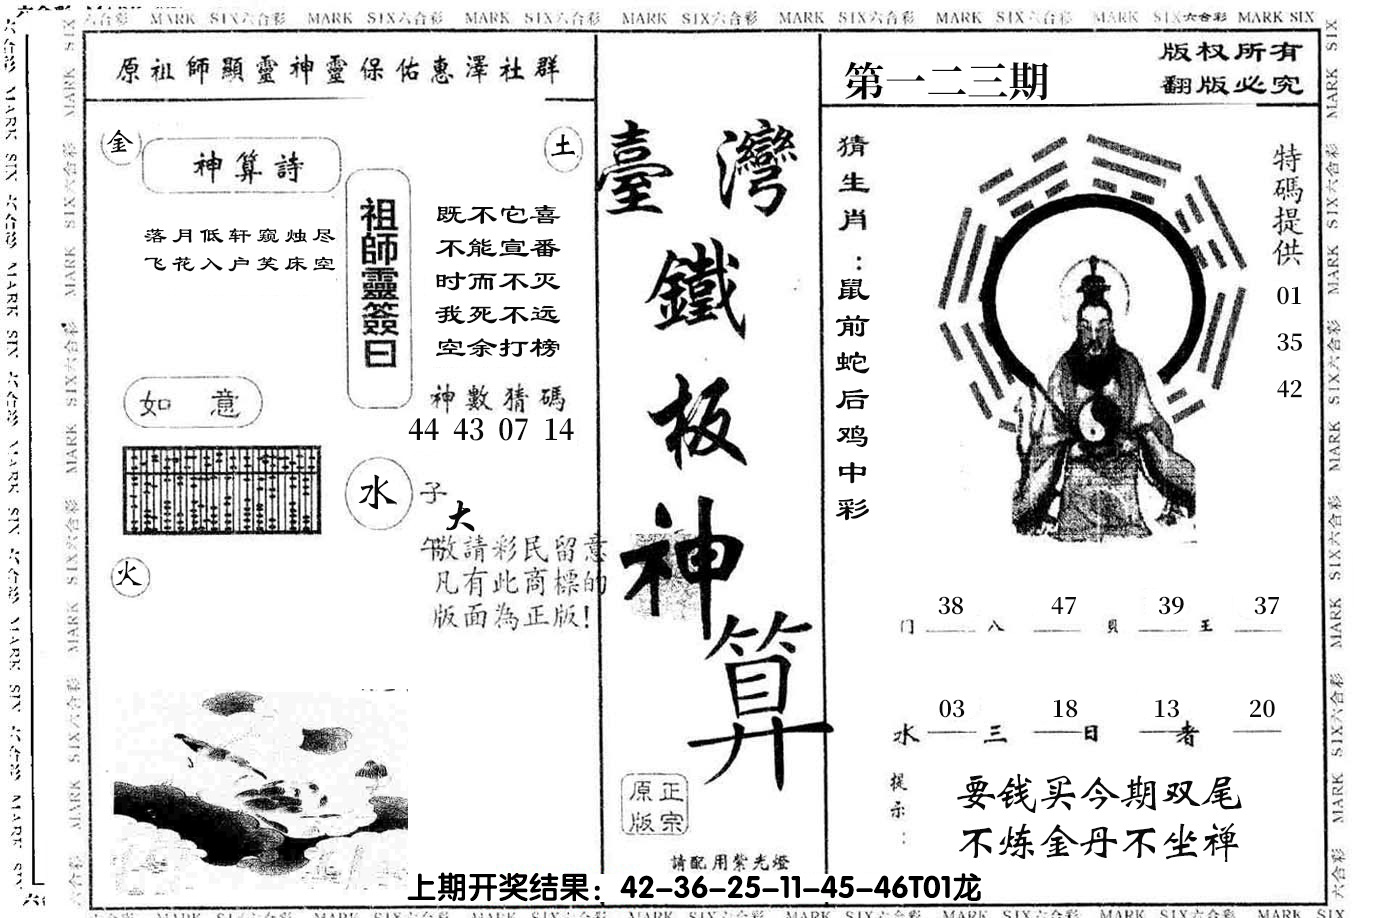 六合彩 MARK SIX六合彩 MARK SIX六合彩 MARK SIX六合彩 MARK SIX六合彩 MARK SIX六合彩 MARK SIX六合彩 MARK SIX六合彩 MARK SIX
原祖師顯靈神靈保佑惠澤社群
金
土
神算詩
落月低轩窥烛尽
飞花入户笑床空
祖師靈簽曰
既不它喜
不能宣番
时而不灭
我死不远
空余打榜
神數猜碼
44 43 07 14
如 意
水
子
大
午
敬請彩民留意
凡有此商標的
版面為正版!
火
臺灣
鐵板神算
正宗
原版
請配用紫光燈
第一二三期
版权所有
翻版必究
猜生肖:鼠前蛇后鸡中彩
特碼提供
01
35
42
38 47 39 37
门 八 貝 王
03 18 13 20
水 三 日 者
提示:
要钱买今期双尾
不炼金丹不坐禅
上期开奖结果：42-36-25-11-45-46T01龙